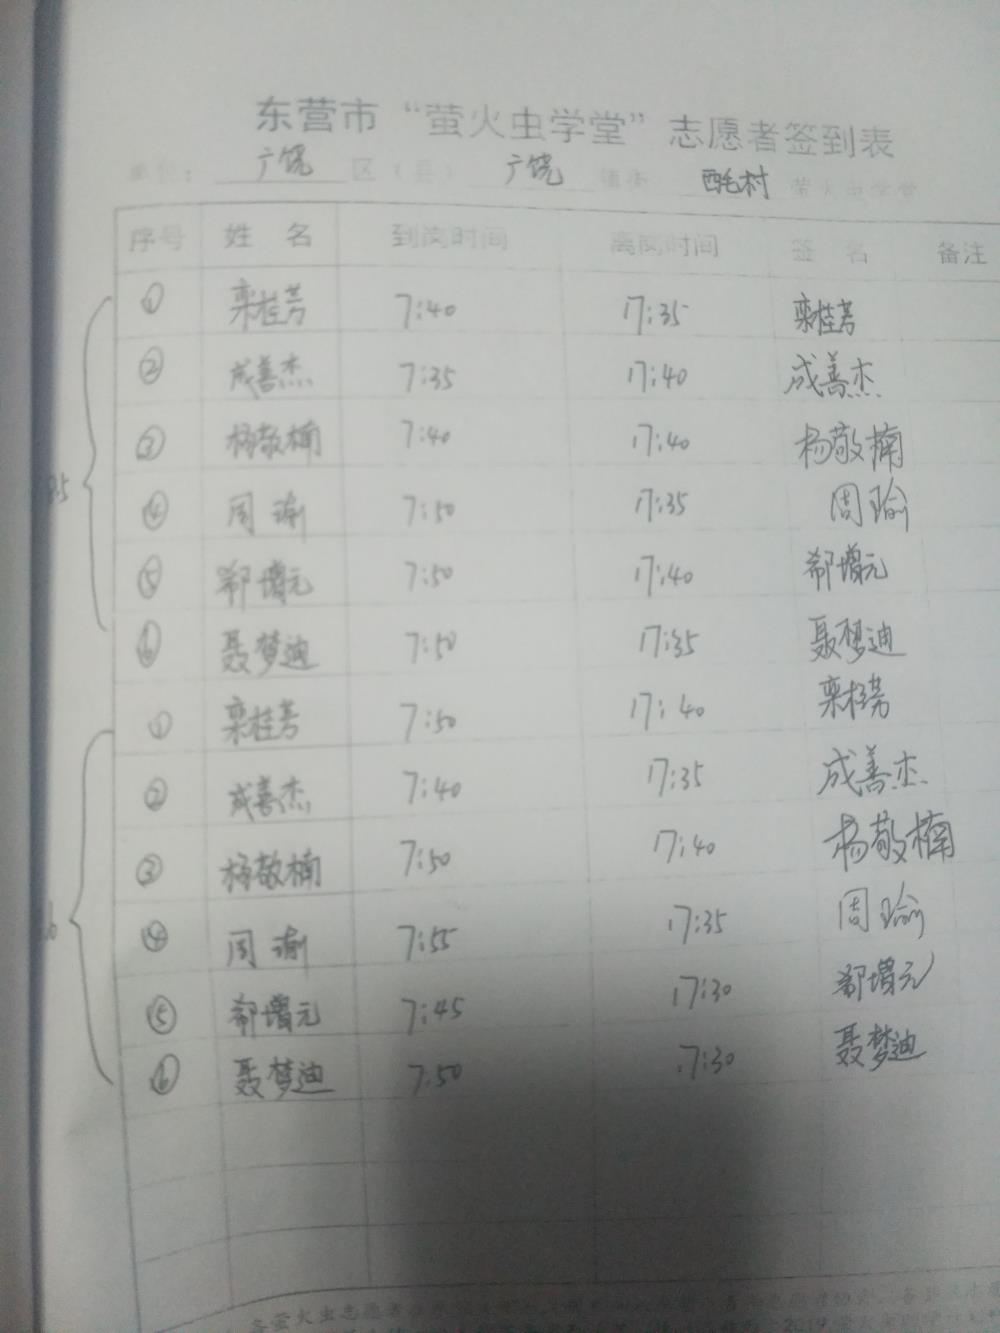 东营市“萤火虫学堂”志愿者签到表
单位： 广饶 区（县） 广饶 镇街 西毛村 萤火虫学堂
序号 姓 名 到岗时间 离岗时间 签 名 备注
① 栾桂芳 7:40 17:35 栾桂芳
② 成善杰 7:35 17:40 成善杰
③ 杨敬楠 7:40 17:40 杨敬楠
④ 周瑜 7:50 17:35 周瑜
⑤ 郗增元 7:50 17:40 郗增元
⑥ 聂梦迪 7:50 17:35 聂梦迪
① 栾桂芳 7:50 17:40 栾桂芳
② 成善杰 7:40 17:35 成善杰
③ 杨敬楠 7:50 17:40 杨敬楠
④ 周瑜 7:55 17:35 周瑜
⑤ 郗增元 7:45 17:30 郗增元
⑥ 聂梦迪 7:50 17:30 聂梦迪